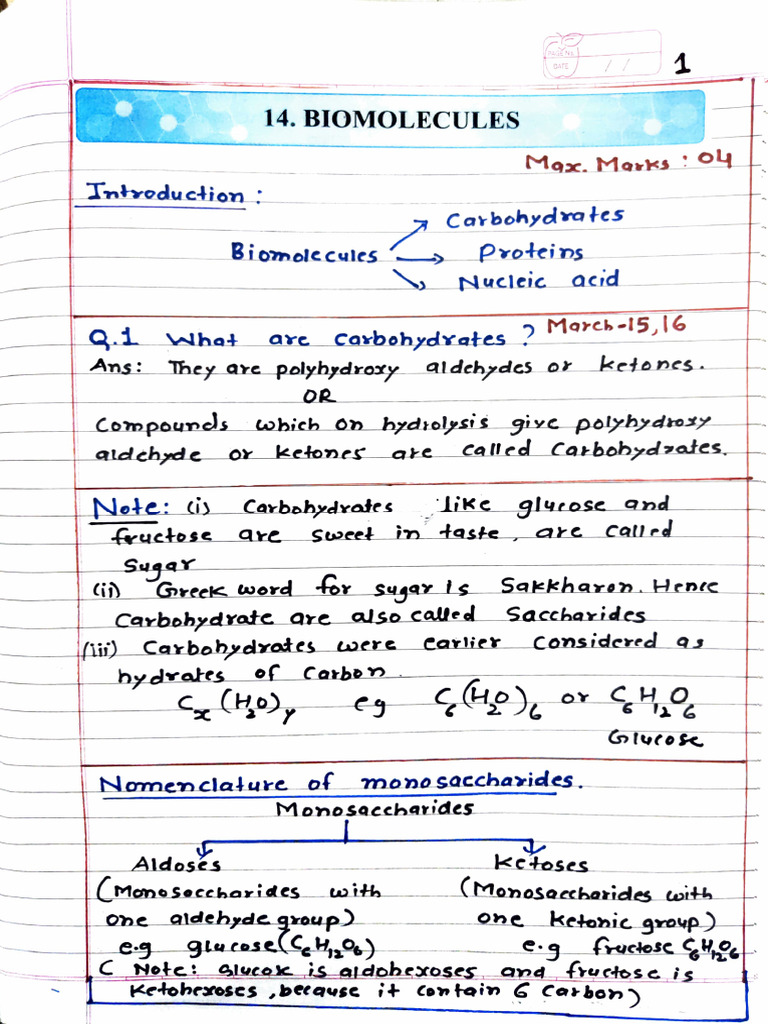 PAGE No.
DATE / /
1
14. BIOMOLECULES
Max. Marks : 04
Introduction :
Carbohydrates
Biomolecules
Proteins
Nucleic acid
Q.1 What are carbohydrates ? March-15,16
Ans: They are polyhydroxy aldehydes or ketones.
OR
Compounds which on hydrolysis give polyhydroxy
aldehyde or ketones are called Carbohydrates.
Note: (i) Carbohydrates like glucose and
fructose are sweet in taste, are called
sugar
(ii) Greek word for sugar is Sakkharon. Hence
Carbohydrate are also called Saccharides
(iii) Carbohydrates were earlier considered as
hydrates of Carbon.
Cx(H2O)y eg C6(H2O)6 or C6H12O6
Glucose
Nomenclature of monosaccharides.
Monosaccharides
Aldoses Ketoses
(Monosaccharides with (Monosaccharides with
one aldehyde group) one Ketonic group)
e.g glucose(C6H12O6) e.g fructose C6H12O6
( Note: Glucose is aldohexoses and fructose is
Ketohexoses, because it contain 6 Carbon)